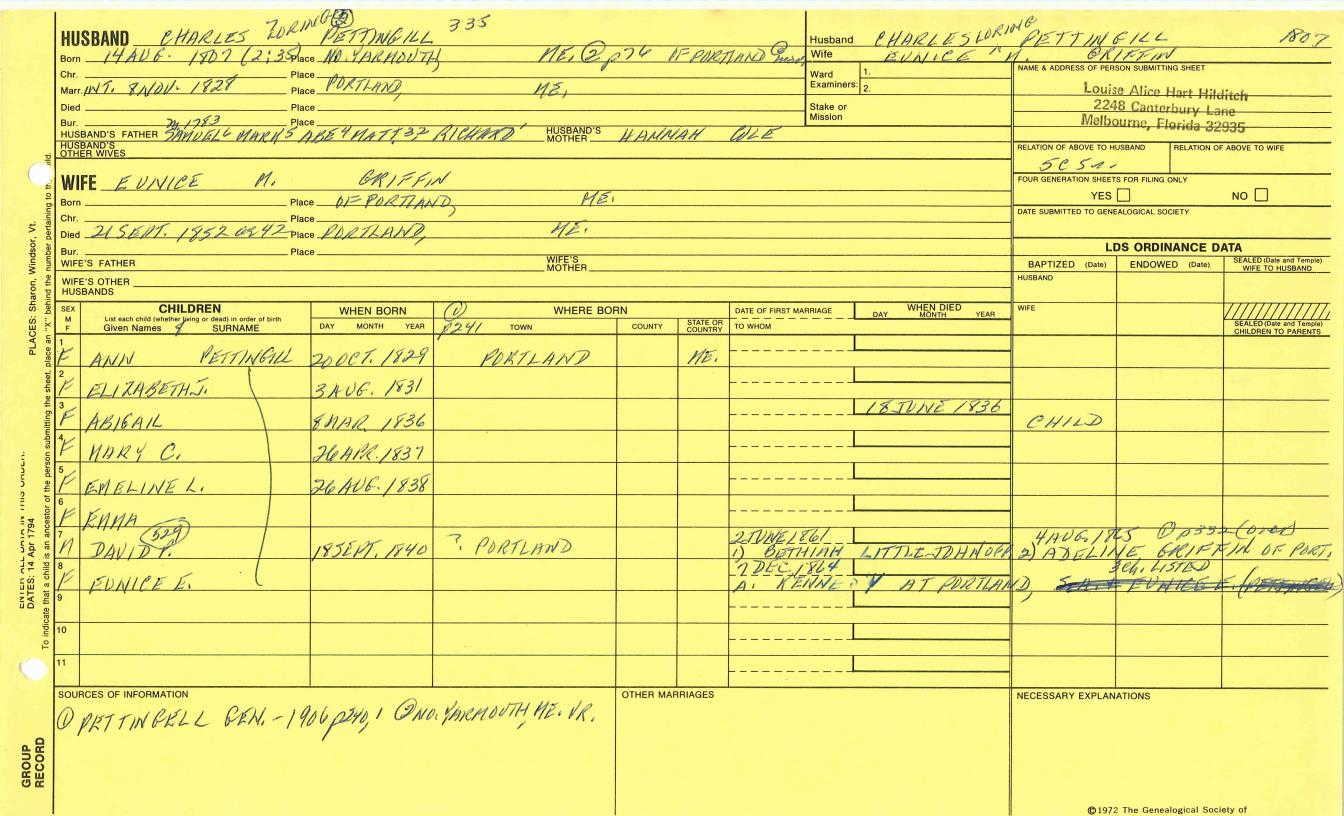 HUSBAND CHARLES LORING PETTINGILL 335
Born 14 AUG. 1807 (2:35) Place NO. YARMOUTH, ME. ② p76 OF PORTLAND
Chr. Place
Marr. INT. 8 NOV. 1828 Place PORTLAND, ME.
Died Place
Bur. Place
m 1783
HUSBAND'S FATHER SAMUEL6 MARK5 ABE4 MATT.32 RICHARD1 HUSBAND'S MOTHER HANNAH COLE
HUSBAND'S OTHER WIVES
WIFE EUNICE M. GRIFFIN
Born Place OF PORTLAND, ME.
Chr. Place
Died 21 SEPT. 1852 OR 42 Place PORTLAND, ME.
Bur. Place
WIFE'S FATHER WIFE'S MOTHER
WIFE'S OTHER HUSBANDS
Husband CHARLES LORING PETTINGILL 1807
Wife EUNICE M. GRIFFIN
Ward Examiners: 1.
2.
Stake or Mission
NAME & ADDRESS OF PERSON SUBMITTING SHEET
Louise Alice Hart Hilditch
2248 Canterbury Lane
Melbourne, Florida 32935
RELATION OF ABOVE TO HUSBAND RELATION OF ABOVE TO WIFE
5C 5r.
FOUR GENERATION SHEETS FOR FILING ONLY
YES NO
DATE SUBMITTED TO GENEALOGICAL SOCIETY
LDS ORDINANCE DATA
BAPTIZED (Date) ENDOWED (Date) SEALED (Date and Temple) WIFE TO HUSBAND
HUSBAND
WIFE
SEALED (Date and Temple) CHILDREN TO PARENTS
SEX M F
CHILDREN
List each child (whether living or dead) in order of birth
Given Names & SURNAME
WHEN BORN
DAY MONTH YEAR
① p241
WHERE BORN
TOWN COUNTY STATE OR COUNTRY
DATE OF FIRST MARRIAGE
TO WHOM
WHEN DIED
DAY MONTH YEAR
1 F ANN PETTINGILL 20 OCT. 1829 PORTLAND ME.
2 F ELIZABETH J. 3 AUG. 1831
3 F ABIGAIL 8 MAR. 1836 18 JUNE 1836 CHILD
4 F MARY C. 26 APR. 1837
5 F EMELINE L. 26 AUG. 1838
6 F EMMA
529
7 M DAVID P. 18 SEPT. 1840 ? PORTLAND 2 JUNE 1861 1) BETHIAH LITTLEJOHN OF P. 4 AUG. 1865 ① p332 (over) 2) ADELINE GRIFFIN OF PORT.
3 Ch. LISTED
8 F EUNICE E. 7 DEC. 1864 A. KENNEY AT PORTLAND, EUNICE E. (PETTINGILL)
9
10
11
SOURCES OF INFORMATION
① PETTINGELL GEN. - 1906 p240,1 ② NO. YARMOUTH, ME. VR.
OTHER MARRIAGES
NECESSARY EXPLANATIONS
©1972 The Genealogical Society of
PLACES: Sharon, Windsor, Vt.
ENTER ALL DATA IN THIS ORDER:
DATES: 14 Apr 1794
To indicate that a child is an ancestor of the person submitting the sheet, place an "X" behind the number pertaining to that child.
GROUP RECORD